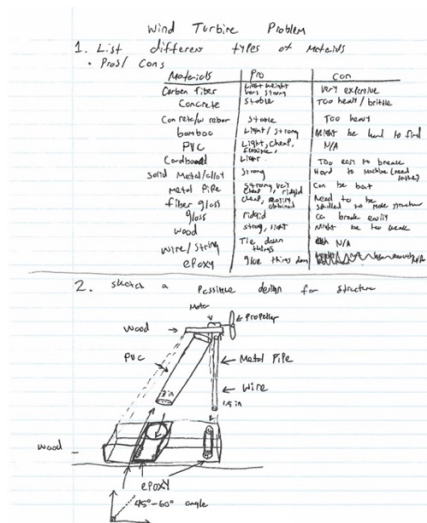 Wind Turbine Problem
1. List different types of Materials
• Pros/ Cons
Materials Pro Con
Carbon fiber Light weight very strong very expensive
Concrete Stable Too heavy / brittle
Concrete/w rebar Stable Too heavy
bamboo Light / strong Might be hard to find
PVC Light, cheap, flexible, N/A
Cardboard Light Too easy to break
Solid Metal/alloy strong Hard to machine (need
metal Pipe strong, ridgid Can be bent
fiber glass cheap, easily obtained Need to be skilled to make structure
glass ridgid can break easily
wood strong, light Might be too weak
wire / string Tie down things N/A
epoxy glue things down
2. sketch a Possitive design for structure
Motor
Propeller
wood
PVC
Metal Pipe
wire
3 in
1.5 in
wood
epoxy
45°-60° angle